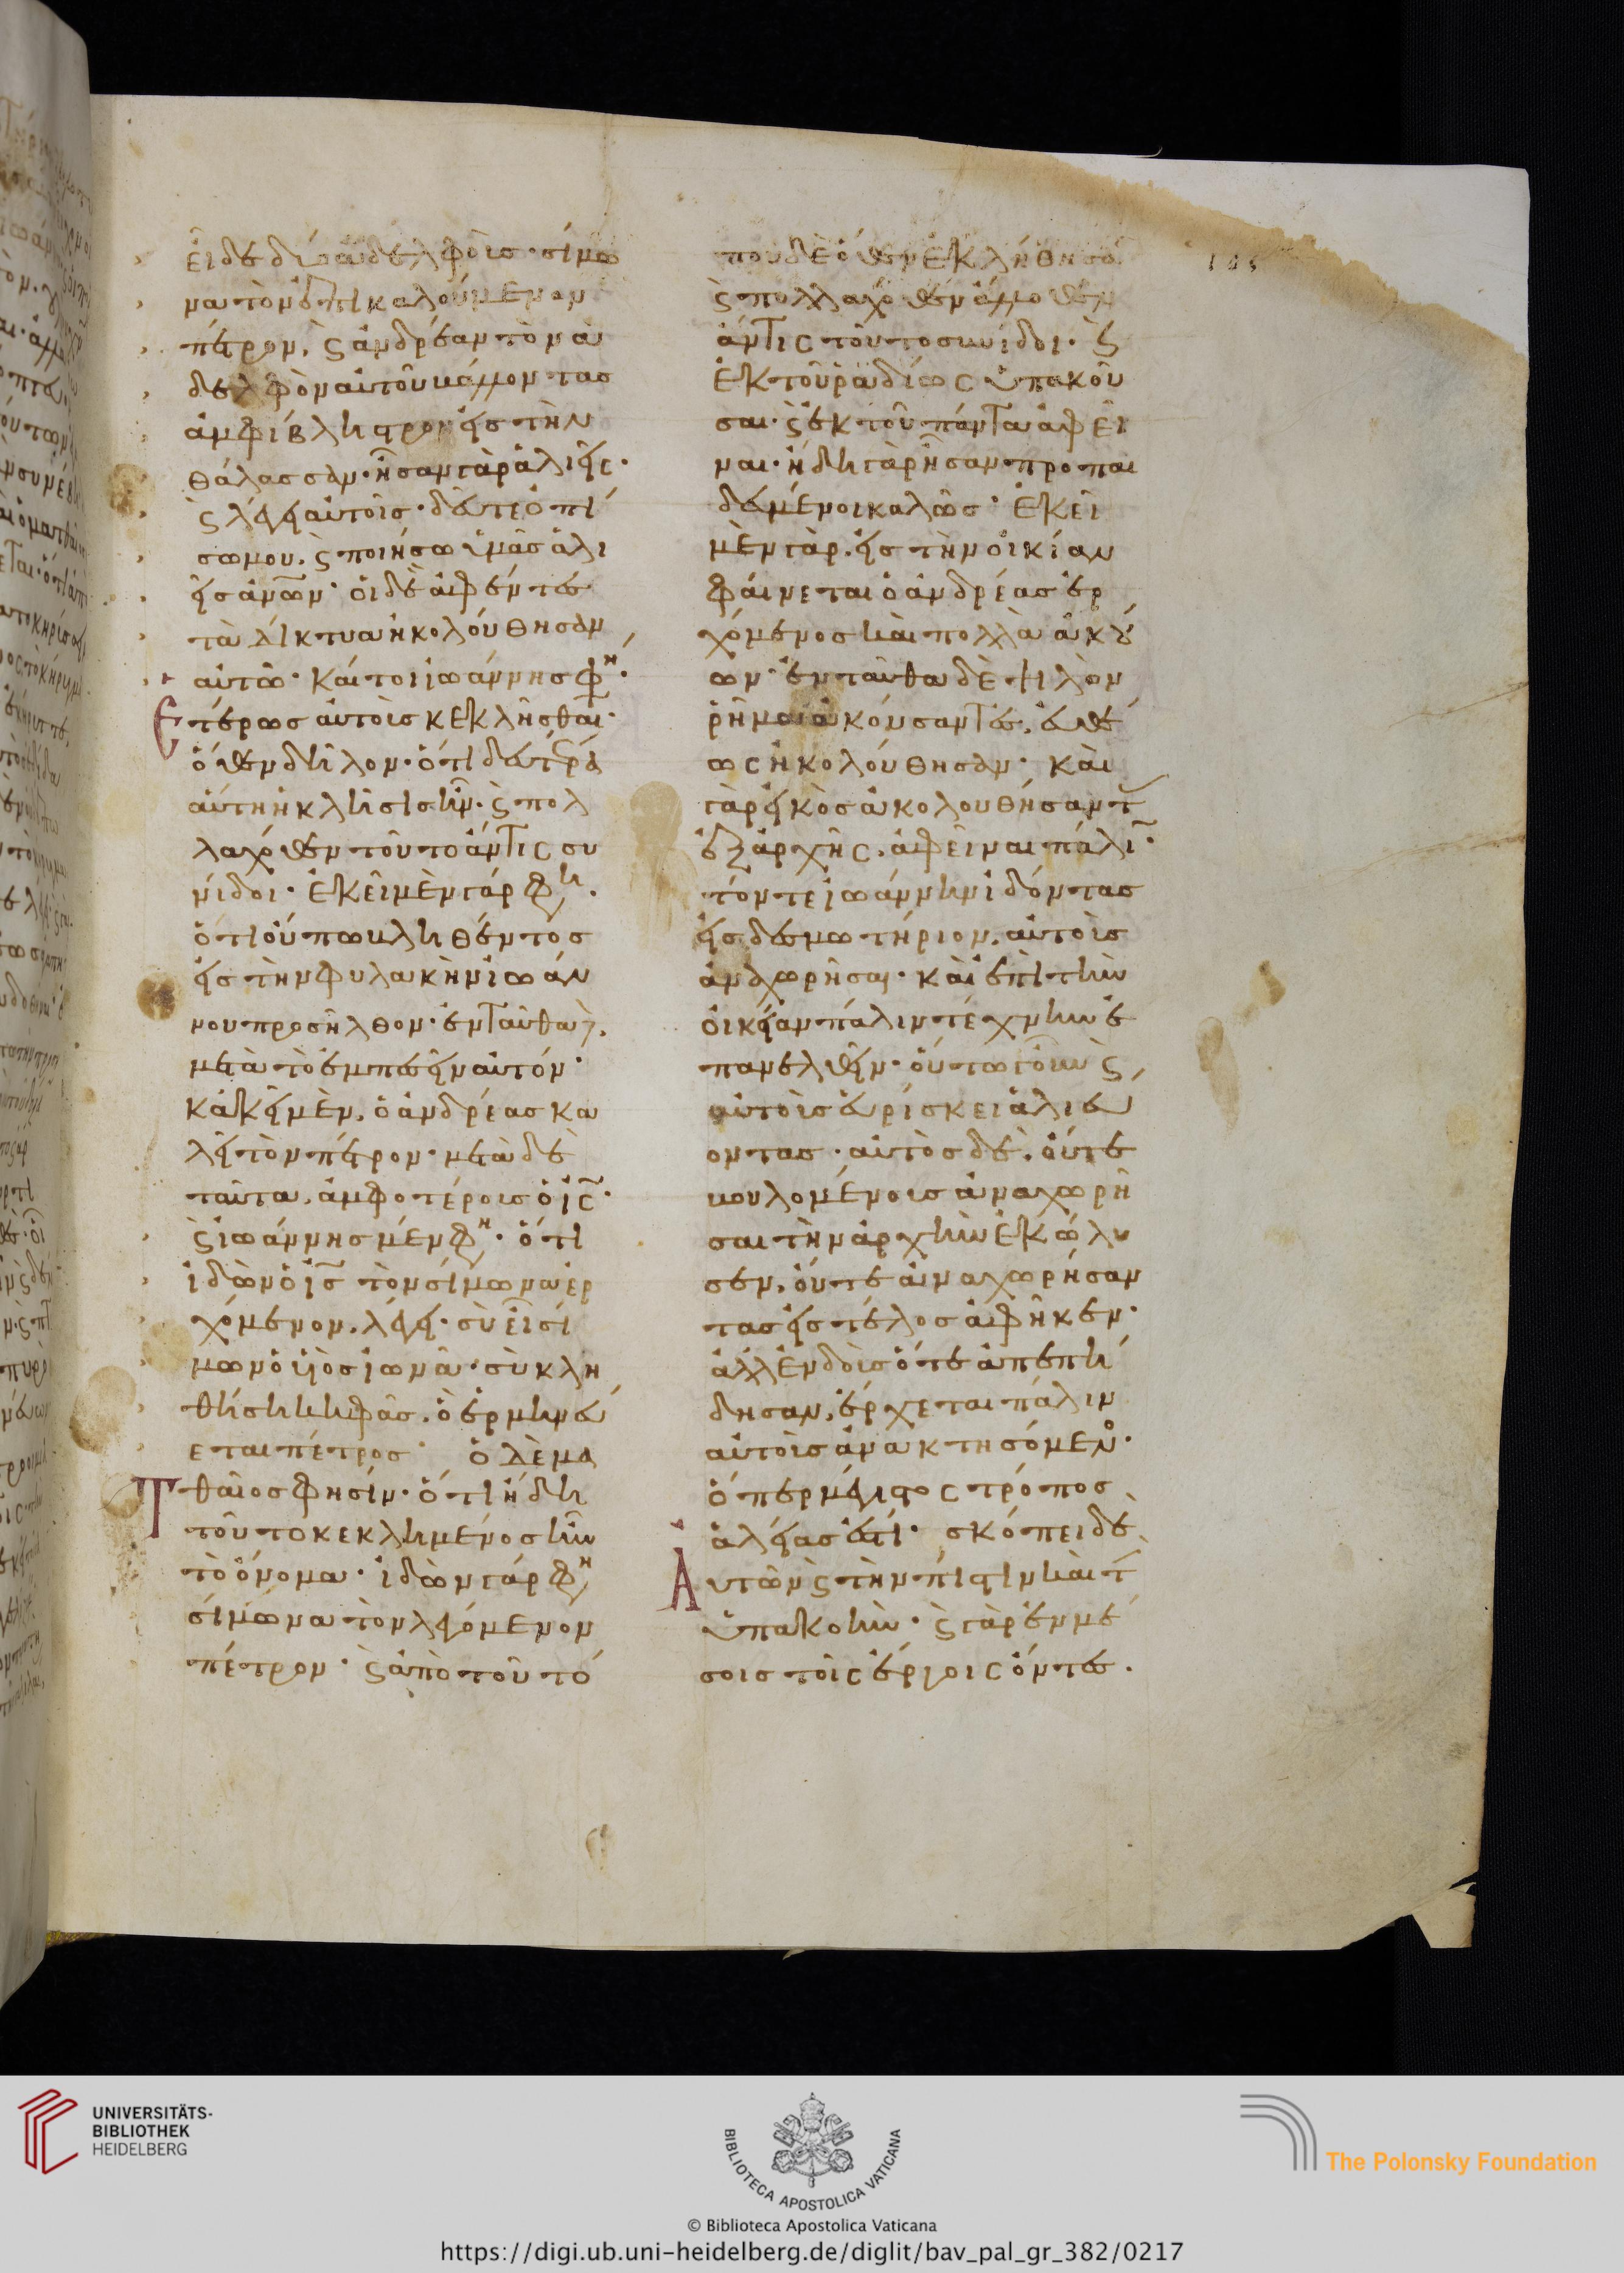 εἶδε δύο ἀδελφοῖς· σίμω
να τὸν ἐπικαλούμενον
πέτρον, ϛ ἀνδρέαν τὸν ἀ
δελφὸν αὐτοῦ βάλλοντας
ἀμφίβληστρον εἰς τὴν
θάλασσαν· ἦσαν γὰρ ἁλιεῖς·
ϛ λέγει αὐτοῖς· δεῦτε ὀπί
σω μου, ϛ ποιήσω ὑμᾶς ἁλι
εῖς ἀνων· οἱ δὲ ἀφέντες
τὰ δίκτυα ἠκολούθησαν
αὐτῶ· καίτοι ἰωάννης φη·
ἑτέρως αὐτοῖς κεκλῆσθαι·
ὅθεν δῆλον· ὅτι δευτέρα
αὕτη ἡ κλῆσις ἦν· ϛ πολ
λαχόθεν τοῦτο ἄν τις συ
νίδοι· ἐκεῖ μὲν γάρ φη·
ὅτι οὔπω βληθέντος
εἰς τὴν φυλακὴν ἰωάν
νου προσῆλθον· ἐνταῦθα δὲ,
μετὰ τὸ ἐμπεσεῖν αὐτόν·
κἀκεῖ μὲν, ὁ ἀνδρέας κα
λεῖ τὸν πέτρον· μετὰ δὲ
ταῦτα, ἀμφοτέροις ὁ ις·
ϛ ἰωάννης μέν φη· ὅτι
ἰδὼν ὁ ις τὸν σίμωνα ἐρ
χόμενον, λέγει· σὺ εἶ σί
μων ὁ υἱὸς ἰωνᾶ· σὺ κλη
θήση κηφᾶς, ὃ ἑρμηνεύ
εται πέτρος· ὁ δὲ μα
τθαῖός φησίν· ὅτι ἤδη
τοῦτο κεκλημένος ἦν
τὸ ὄνομα· ἰδὼν γάρ φη
σίμωνα τὸν λεγόμενον
πέτρον· ϛ ἀπὸ τοῦ τό
που δὲ ὅθεν ἐκλήθησαν
ϛ πολλαχόθεν ἄλλοθεν
ἄν τις τοῦτο συνίδοι· ϛ
ἐκ τοῦ ῥαδίως ὑπακοῦ
σαι· ϛ ἐκ τοῦ πάντα ἀφεῖ
ναι· ἤδη γὰρ ἦσαν προπαι
δευμένοι καλῶς· ἐκεῖ
μὲν γὰρ, εἰς τὴν οἰκίαν
φαίνεται ὁ ἀνδρέας ἐρ
χόμενος καὶ πολλὰ ἀκού
ων· ἐνταῦθα δὲ ψιλὸν
ῥῆμα ἀκούσαντες, εὐθέ
ως ἠκολούθησαν· καὶ
γὰρ εἰκὸς ἀκολουθήσαντ
ἐξ ἀρχῆς, ἀφεῖναι πάλι·
τόν τε ἰωάννην ἰδόντας
εἰς δεσμωτήριον, αὐτοῖς
ἀναχωρῆσαι· καὶ ἐπὶ τὴν
οἰκείαν πάλιν τέχνην ἐ
πανελθεῖν· οὕτω γοῦν ϛ
αὐτοῖς εὑρίσκει ἁλιεύ
οντας· αὐτὸς δὲ, οὔτε
βουλομένοις ἀναχωρῆ
σαι τὴν ἀρχὴν ἐκώλυ
σεν, οὔτε ἀναχωρήσαν
τας εἰς τέλος ἀφῆκεν·
ἀλλ ἐνδοῖς ὅτε ἀπεπή
δησαν, ἔρχεται πάλιν
αὐτοῖς ἀνακτησόμενο·
ὅπερ μέγιστος τρόπος
ἁλείας ἐστί· σκόπει δὲ
αὐτῶν ϛ τὴν πίστιν καὶ τ
ὑπακοήν· ϛ γὰρ ἐν μέ
σοις τοῖς ἔργοις ὄντες.
UNIVERSITÄTS-
BIBLIOTHEK
HEIDELBERG
BIBLIOTECA APOSTOLICA VATICANA
© Biblioteca Apostolica Vaticana
The Polonsky Foundation
https://digi.ub.uni-heidelberg.de/diglit/bav_pal_gr_382/0217